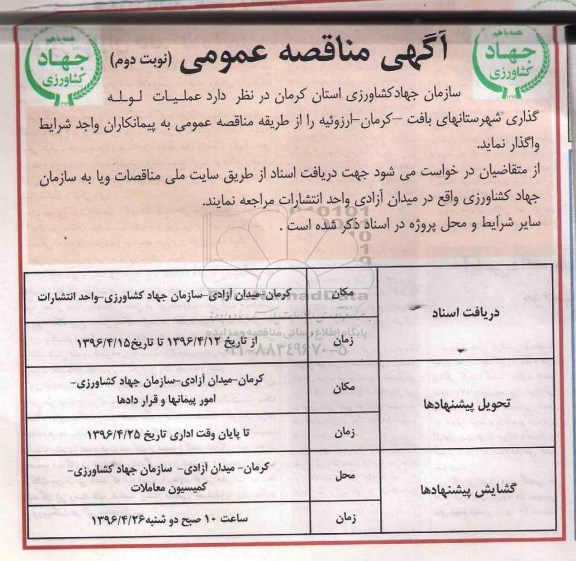 همه با هم
جهاد
کشاورزی
آگهی مناقصه عمومی (نوبت دوم)
همه با هم
جهاد
کشاورزی
سازمان جهادکشاورزی استان کرمان در نظر دارد عملیات لوله
گذاری شهرستانهای بافت –کرمان-ارزوئیه را از طریقه مناقصه عمومی به پیمانکاران واجد شرایط
واگذار نماید.
از متقاضیان در خواست می شود جهت دریافت اسناد از طریق سایت ملی مناقصات ویا به سازمان
جهاد کشاورزی واقع در میدان آزادی واحد انتشارات مراجعه نمایند.
سایر شرایط و محل پروژه در اسناد ذکر شده است .
دریافت اسناد
مکان
کرمان-میدان آزادی-سازمان جهاد کشاورزی-واحد انتشارات
زمان
از تاریخ ۱۳۹۶/۴/۱۲ تا تاریخ۱۳۹۶/۴/۱۵
پایگاه اطلاع رسانی مناقصه و مزایده
۰۲۱-۸۸۳۴۹۶۷۰-۵
تحویل پیشنهادها
مکان
کرمان-میدان آزادی-سازمان جهاد کشاورزی-
امور پیمانها و قرار دادها
زمان
تا پایان وقت اداری تاریخ ۱۳۹۶/۴/۲۵
گشایش پیشنهادها
محل
کرمان- میدان آزادی- سازمان جهاد کشاورزی-
کمیسیون معاملات
زمان
ساعت ۱۰ صبح دو شنبه۱۳۹۶/۴/۲۶